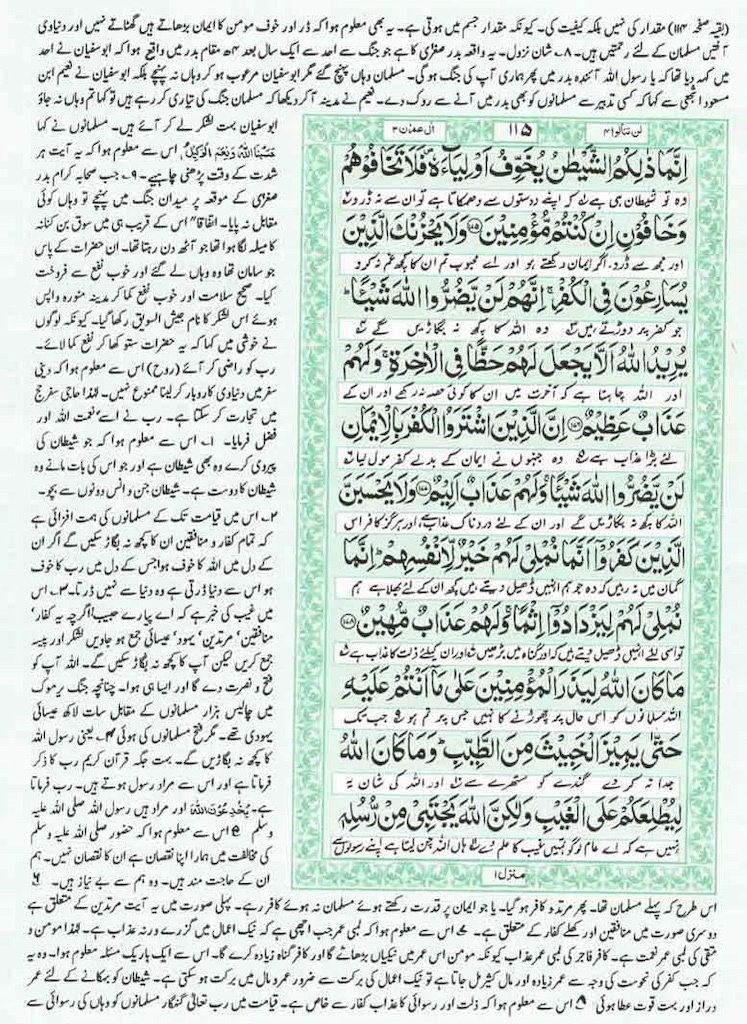 (بقیہ صفحہ ۱۱۴) مقدار کی نہیں بلکہ کیفیت کی۔ کیونکہ مقدار جسم میں ہوتی ہے۔ یہ بھی معلوم ہوا کہ ڈر اور خوف مومن کا ایمان بڑھاتے ہیں گھٹاتے نہیں اور دنیاوی
آفتیں مسلمان کے لئے رحمتیں ہیں۔ ۸۔ شان نزول۔ یہ واقعہ بدر صغریٰ کا ہے جو جنگ سے احد سے ایک سال بعد ۴ھ مقام بدر میں واقع ہوا کہ ابوسفیان نے احد
میں کہہ دیا تھا کہ یا رسول اللہ آئندہ بدر میں پھر ہماری آپ کی جنگ ہوگی۔ مسلمان وہاں پہنچ گئے مگر ابوسفیان مرعوب ہو کر وہاں نہ پہنچے بلکہ ابوسفیان نے نعیم ابن
مسعود اشجعی سے کہا کہ کسی تدبیر سے مسلمانوں کو بھی بدر میں آنے سے روک دے۔ نعیم نے مدینہ آکر دیکھا کہ مسلمان جنگ کی تیاری کر رہے ہیں تو کہا تم وہاں نہ جاؤ
ابوسفیان بہت لشکر لے کر آئے ہیں۔ مسلمانوں نے کہا
حَسْبُنَا اللّٰهُ وَنِعْمَ الْوَكِيْلُ اس سے معلوم ہوا کہ یہ آیت ہر
شدت کے وقت پڑھنی چاہیے۔ ۹۔ جب صحابہ کرام بدر
صغریٰ کے موقعہ پر میدان جنگ میں پہنچے تو وہاں کوئی
مقابل نہ پایا۔ اتفاقاً اس کے قریب ہی میں سوق بن کنانہ
کا میلہ لگا ہوا تھا جو آٹھ دن رہتا تھا۔ ان حضرات کے پاس
جو سامان تھا وہ وہاں لے گئے اور خوب نفع سے فروخت
کیا۔ صحیح سلامت اور خوب نفع کما کر مدینہ منورہ واپس
ہوئے اس لشکر کا نام جیش السویق رکھا گیا۔ کیونکہ لوگوں
نے خوشی میں کہا کہ یہ حضرات ستو کھا کر نفع کما لائے۔
رب کو راضی کر آئے (روح) اس سے معلوم ہوا کہ دینی
سفر میں دنیاوی کاروبار کر لینا ممنوع نہیں۔ لہٰذا حاجی سفر حج
میں تجارت کر سکتا ہے۔ رب نے اسے نعمت اللہ اور
فضل فرمایا۔ ۱۔ اس سے معلوم ہوا کہ جو شیطان کی
پیروی کرے وہ بھی شیطان ہے اور جو اس کی بات مانے وہ
شیطان کا دوست ہے۔ شیطان جن و انس دونوں سے بچو۔
۲۔ اس میں قیامت تک کے مسلمانوں کی ہمت افزائی ہے
کہ تمام کفار و منافقین ان کا کچھ نہ بگاڑ سکیں گے اگر ان
کے دل میں اللہ کا خوف ہوا جس کے دل میں رب کا خوف
ہو اس سے دنیا ڈرتی ہے وہ دنیا سے نہیں ڈرتا۔ ۳۔ اس
میں غیب کی خبر ہے کہ اے پیارے حبیب! اگرچہ یہ کفار'
منافقین' مرتدین' یہود' عیسائی جمع ہو جاویں لشکر اور پیسہ
جمع کریں لیکن آپ کا کچھ نہ بگاڑ سکیں گے۔ اللہ آپ کو
فتح و نصرت دے گا اور ایسا ہی ہوا۔ چنانچہ جنگ یرموک
میں چالیس ہزار مسلمانوں کے مقابل سات لاکھ عیسائی
یہودی تھے۔ مگر فتح مسلمانوں کی ہوئی ۴۔ یعنی رسول اللہ
کا کچھ نہ بگاڑیں گے۔ بہت جگہ قرآن کریم رب کا ذکر
فرماتا ہے اور اس سے مراد رسول ہوتے ہیں۔ رب فرماتا
ہے۔ يُخٰدِعُوْنَ اللّٰهَ اور مراد ہیں رسول اللہ صلی اللہ علیہ
وسلم ۵ اس سے معلوم ہوا کہ حضور صلی اللہ علیہ وسلم
کی مخالفت میں ہمارا اپنا نقصان ہے ان کا نقصان نہیں۔ ہم
ان کے حاجت مند ہیں۔ وہ ہم سے بے نیاز ہیں۔ ۶
لن تنالوا ۴ ۱۱۵ اٰل عمرٰن ۳
اِنَّمَا ذٰلِكُمُ الشَّيْطٰنُ يُخَوِّفُ اَوْلِيَآءَهٗ فَلَا تَخَافُوْهُمْ
وہ تو شیطان ہی ہے کہ اپنے دوستوں سے دھمکاتا ہے تو ان سے نہ ڈرو
وَخَافُوْنِ اِنْ كُنْتُمْ مُّؤْمِنِيْنَ ۝۱۷۵ وَلَا يَحْزُنْكَ الَّذِيْنَ
اور مجھ سے ڈرو۔ اگر ایمان رکھتے ہو اور اے محبوب تم ان کا کچھ غم نہ کرو
يُسَارِعُوْنَ فِي الْكُفْرِ ۚ اِنَّهُمْ لَنْ يَّضُرُّوا اللّٰهَ شَيْـًٔا ؕ
جو کفر پر دوڑتے ہیں وہ اللہ کا کچھ نہ بگاڑیں گے
يُرِيْدُ اللّٰهُ اَلَّا يَجْعَلَ لَهُمْ حَظًّا فِي الْاٰخِرَةِ ۚ وَلَهُمْ
اور اللہ چاہتا ہے کہ آخرت میں ان کا کوئی حصہ نہ رکھے اور ان کے
عَذَابٌ عَظِيْمٌ ۝۱۷۶ اِنَّ الَّذِيْنَ اشْتَرَوُا الْكُفْرَ بِالْاِيْمَانِ
لئے بڑا عذاب ہے وہ جنہوں نے ایمان کے بدلے کفر مول لیا
لَنْ يَّضُرُّوا اللّٰهَ شَيْـًٔا وَلَهُمْ عَذَابٌ اَلِيْمٌ ۝۱۷۷ وَلَا يَحْسَبَنَّ
اللہ کا کچھ نہ بگاڑیں گے اور ان کے لئے دردناک عذاب ہے، اور ہرگز کافر اس
الَّذِيْنَ كَفَرُوْۤا اَنَّمَا نُمْلِيْ لَهُمْ خَيْرٌ لِّاَنْفُسِهِمْ ؕ اِنَّمَا
گمان میں نہ رہیں کہ وہ جو ہم انہیں ڈھیل دیتے ہیں کچھ ان کے لئے بھلا ہے ہم
نُمْلِيْ لَهُمْ لِيَزْدَادُوْۤا اِثْمًا ۚ وَلَهُمْ عَذَابٌ مُّهِيْنٌ ۝۱۷۸
تو اسی لئے انہیں ڈھیل دیتے ہیں کہ اور گناہ میں بڑھیں اور ان کیلئے ذلت کا عذاب ہے
مَا كَانَ اللّٰهُ لِيَذَرَ الْمُؤْمِنِيْنَ عَلٰى مَاۤ اَنْتُمْ عَلَيْهِ
اللہ مسلمانوں کو اس حال پر چھوڑنے کا نہیں جس پر تم ہو جب تک
حَتّٰى يَمِيْزَ الْخَبِيْثَ مِنَ الطَّيِّبِ ؕ وَمَا كَانَ اللّٰهُ
جدا نہ کر دے گندے کو ستھرے سے اور اللہ کی شان یہ
لِيُطْلِعَكُمْ عَلَى الْغَيْبِ وَلٰكِنَّ اللّٰهَ يَجْتَبِيْ مِنْ رُّسُلِهٖ
نہیں ہے کہ اے عام لوگو تمہیں غیب کا علم دے دے ہاں اللہ چن لیتا ہے اپنے رسولوں سے
منزل ۱
اس طرح کہ پہلے مسلمان تھا۔ پھر مرتد و کافر ہو گیا۔ یا جو ایمان پر قدرت رکھتے ہوئے مسلمان نہ ہوئے کافر رہے۔ پہلی صورت میں یہ آیت مرتدین کے متعلق ہے
دوسری صورت میں منافقین اور کھلے کفار کے متعلق ہے۔ ۷ اس سے معلوم ہوا کہ لمبی عمر جب اچھی ہے کہ نیک اعمال میں گزرے ورنہ عذاب ہے۔ لہٰذا مومن و
متقی کی لمبی عمر نعمت ہے۔ کافر فاجر کی لمبی عمر عذاب کیونکہ مومن اس عمر میں نیکیاں بڑھائے گا اور کافر گناہ زیادہ کرے گا۔ اس سے ایک باریک مسئلہ معلوم ہوا۔ وہ یہ
کہ جب کفر کی نحوست کی وجہ سے عمر زیادہ اور مال کثیر مل جاتا ہے تو نیک اعمال کی برکت سے ضرور عمر و مال میں برکت ہو سکتی ہے۔ شیطان کو بہکانے کے لئے عمر
دراز اور بہت قوت عطا ہوئی ۸ اس سے معلوم ہوا کہ ذلت اور رسوائی کا عذاب کفار سے خاص ہے۔ قیامت میں رب تعالیٰ گنہگار مسلمانوں کو وہاں کی رسوائی سے